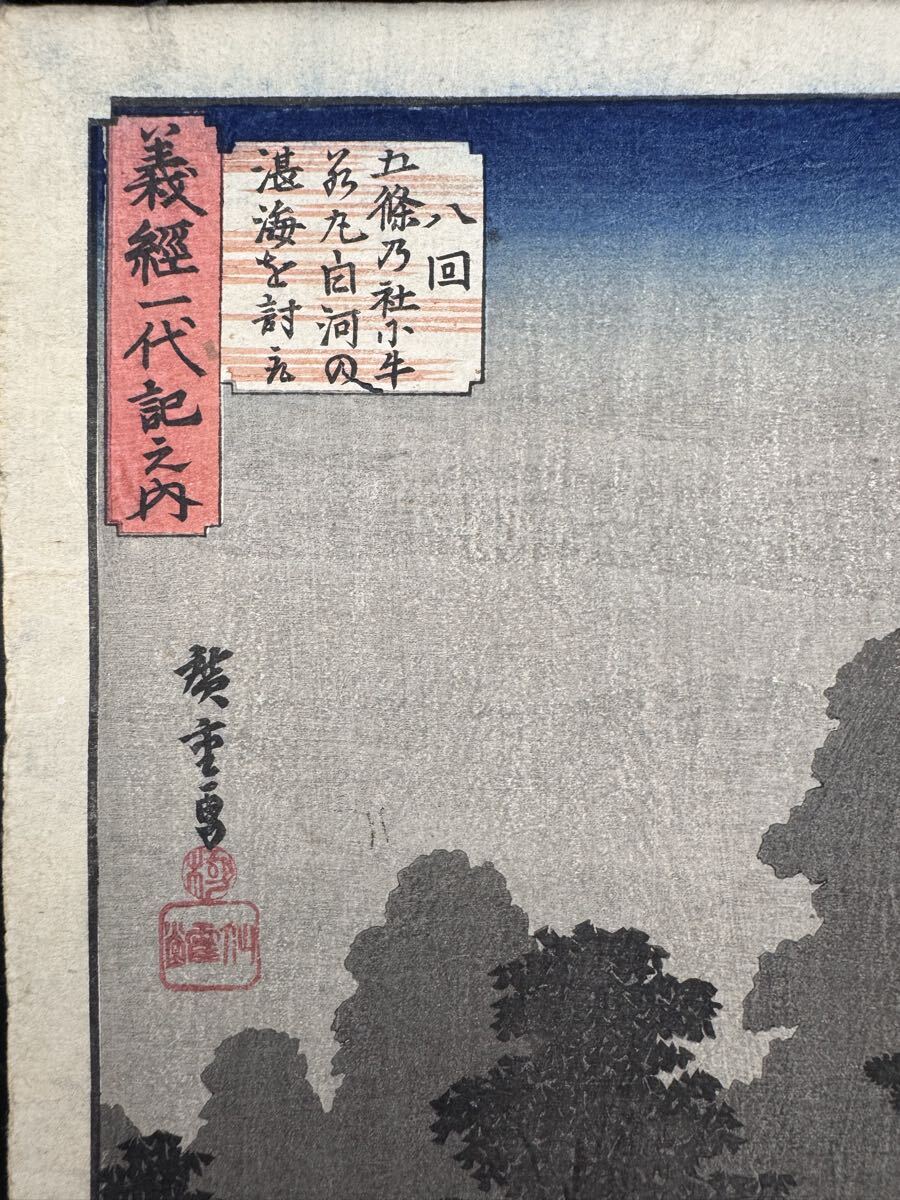 義經一代記之内
八回
五條乃社小牛
若丸白河の
湛海を討取
廣重画